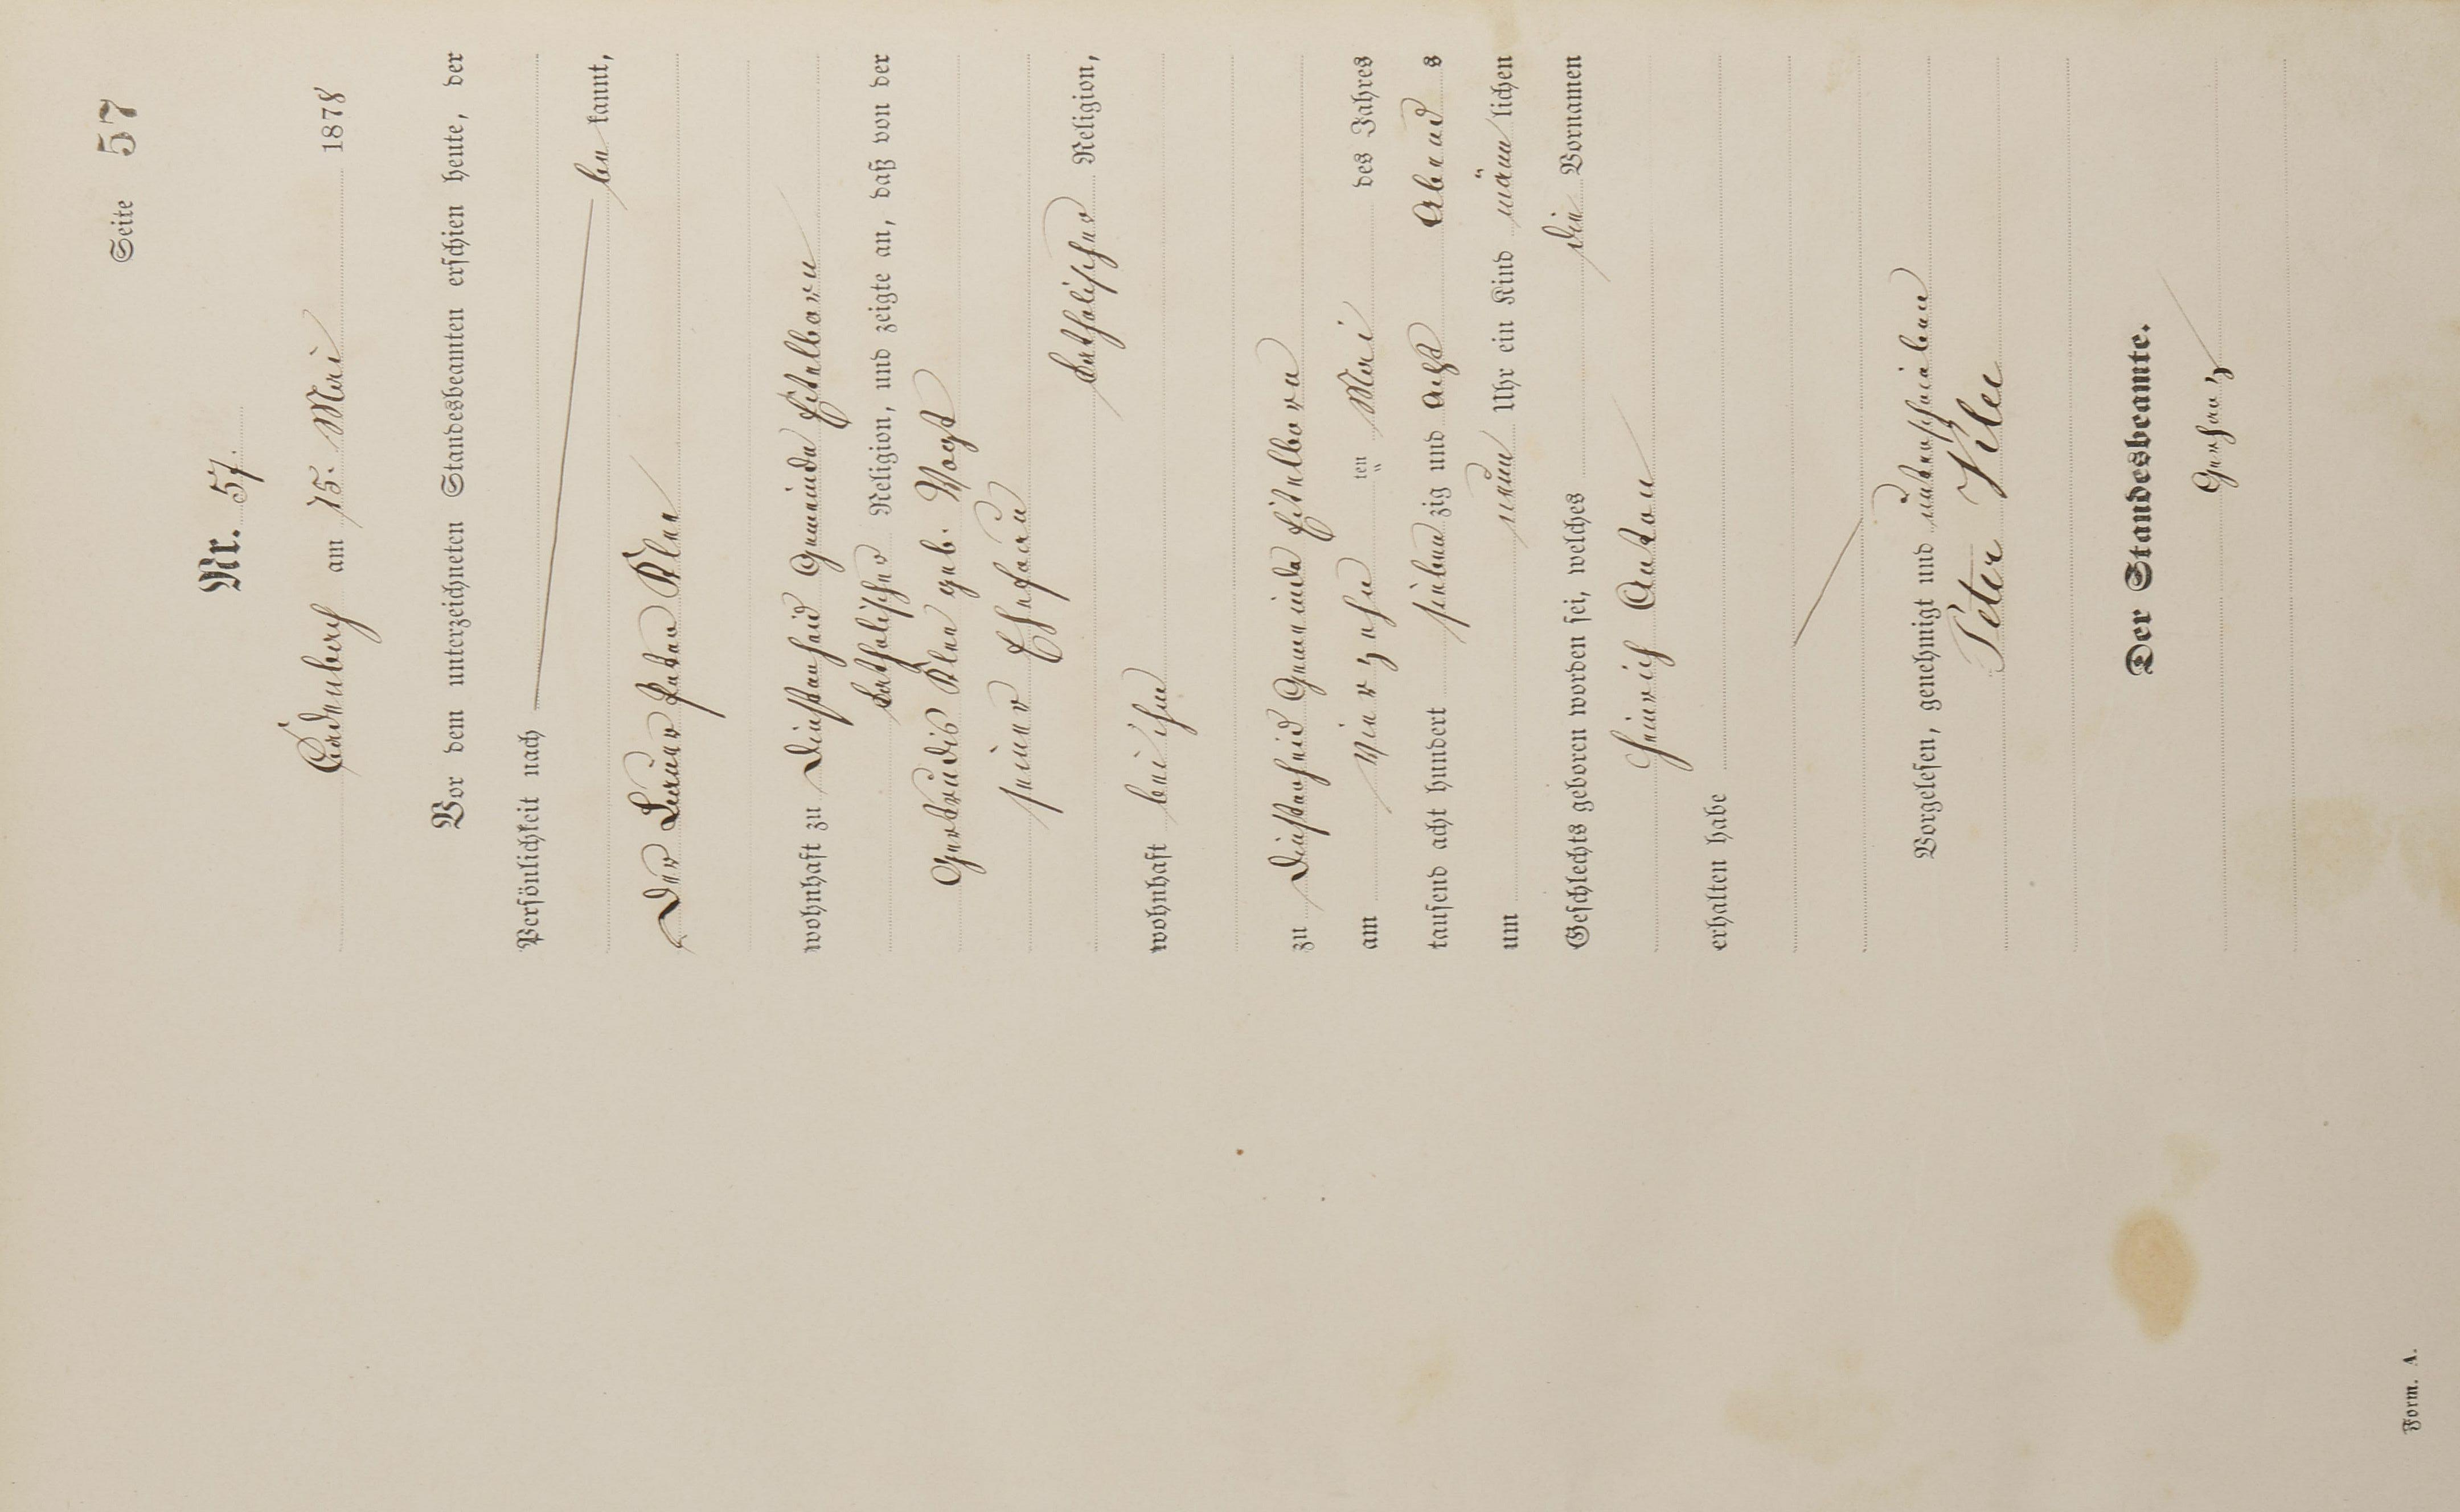 Seite 57
Nr. 57.
am 15. Mai 1878
Vor dem unterzeichneten Standesbeamten erschien heute, der
Persönlichkeit nach
be kannt,
Der Peter Klee
wohnhaft zu Dienstanheid Gemeinde Eitelborn
katholischer Religion, und zeigte an, daß von der
Gertrudis Klee geb. Vogt
seiner Ehefrau
katholischer Religion,
wohnhaft bei ihm
zu Gemeinde Eitelborn
am vierzehn ten Mai des Jahres
tausend acht hundert sieben zig und acht Abend s
um neun Uhr ein Kind männ lichen
Geschlechts geboren worden sei, welches die Vornamen
Heinrich Anton
erhalten habe
Vorgelesen, genehmigt und unterschrieben
Peter Klee
Der Standesbeamte.
Gerharz
Form. A.